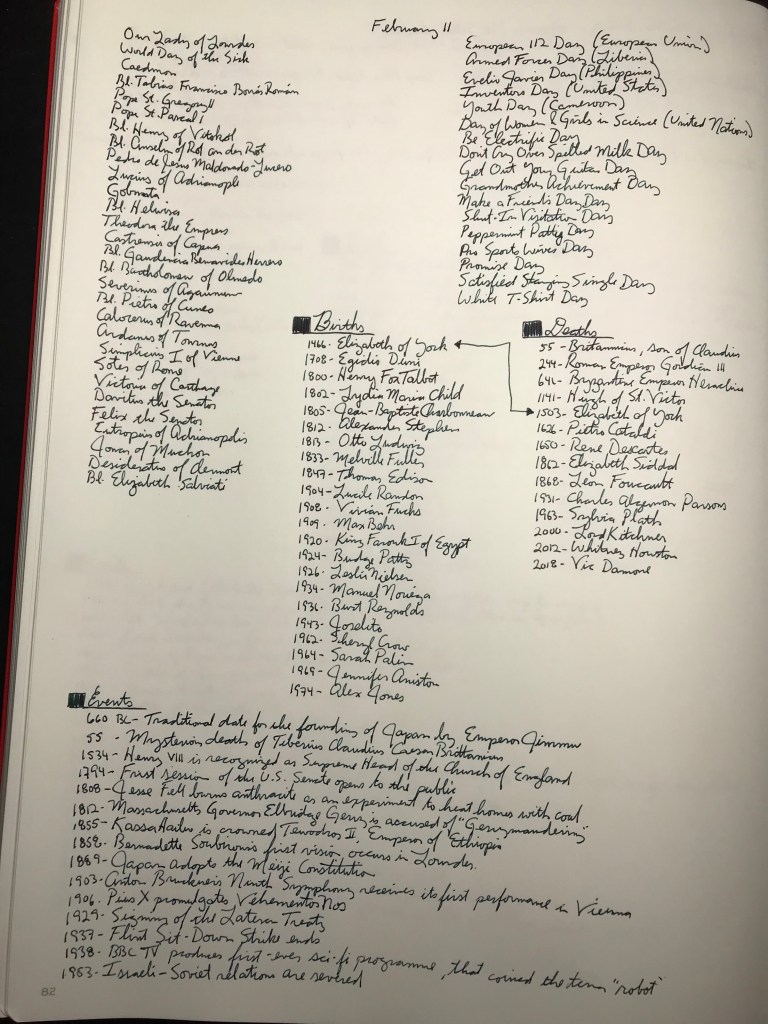 February 11
Our Lady of Lourdes
World Day of the Sick
Caedmon
Bl. Tobias Francisco Borrás Román
Pope St. Gregory II
Pope St. Pascal I
Bl. Henry of Vitskol
Bl. Anselm of Rot an der Rot
Pedro de Jesus Maldonado-Lucero
Lucius of Adrianople
Gobnata
Bl. Helwisa
Theodora the Empress
Castrensis of Capua
Bl. Gaudencia Benavides Herrero
Bl. Bartholomew of Olmedo
Severinus of Agaunum
Bl. Pietro of Cuneo
Calocerus of Ravenna
Ardanus of Tournus
Simplicius I of Vienne
Sotes of Rome
Victoria of Carthage
Dativus the Senator
Felix the Senator
Eutropius of Adrianopolis
Jonas of Muchon
Desideratus of Clermont
Bl. Elizabeth Salviati
European 112 Day (European Union)
Armed Forces Day (Liberia)
Evelio Javier Day (Philippines)
Inventors Day (United States)
Youth Day (Cameroon)
Day of Women & Girls in Science (United Nations)
Be Electrific Day
Don't Cry Over Spilled Milk Day
Get Out Your Guitar Day
Grandmother Achievement Day
Make a Friends Day Day
Shut-In Visitation Day
Peppermint Patty Day
Pro Sports Wives Day
Promise Day
Satisfied Staying Single Day
White T-Shirt Day
Births
1466- Elizabeth of York
1708- Egidio Duni
1800- Henry Fox Talbot
1802- Lydia Maria Child
1805- Jean-Baptiste Charbonneau
1812- Alexander Stephens
1813- Otto Ludwig
1833- Melville Fuller
1847- Thomas Edison
1904- Lucile Randon
1908- Vivian Fuchs
1909- Max Behr
1920- King Farouk I of Egypt
1924- Budge Patty
1926- Leslie Nielsen
1934- Manuel Noriega
1936- Burt Reynolds
1943- Joselito
1962- Sheryl Crow
1964- Sarah Palin
1969- Jennifer Aniston
1974- Alex Jones
Deaths
55- Britannicus, son of Claudius
244- Roman Emperor Gordian III
641- Byzantine Emperor Heraclius
1141- Hugh of St. Victor
1503- Elizabeth of York
1626- Pietro Cataldi
1650- Rene Descartes
1862- Elizabeth Siddal
1868- Leon Foucault
1931- Charles Algernon Parsons
1963- Sylvia Plath
2000- Lord Kitchner
2012- Whitney Houston
2018- Vic Damone
Events
660 BC- Traditional date for the founding of Japan by Emperor Jimmu
55 - Mysterious death of Tiberius Claudius Caesar Brittanicus
1534- Henry VIII is recognized as Supreme Head of the Church of England
1794- First session of the U.S. Senate opens to the public
1808- Jesse Fell burns anthracite as an experiment to heat homes with coal
1812- Massachusetts Governor Elbridge Gerry is accused of "Gerrymandering"
1855- Kassa Hailu is crowned Tewodros II, Emperor of Ethiopia
1858- Bernadette Soubirous's first vision occurs in Lourdes.
1889- Japan adopts the Meiji Constitution
1903- Anton Bruckner's Ninth Symphony receives its first performance in Vienna
1906- Pius X promulgates Vehementos Nos
1929- Signing of the Lateran Treaty
1937- Flint Sit-Down Strike ends
1938- BBC TV produces first-ever sci-fi programme, that coined the term "robot"
1953- Israeli-Soviet relations are severed
82